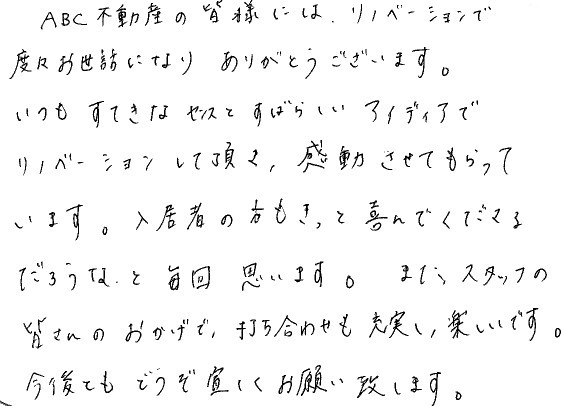 ABC不動産の皆様には、リノベーションで
度々お世話になり ありがとうございます。
いつも すてきな センスと すばらしい アイディアで
リノベーションして頂き、感動させてもらって
います。入居者の方もきっと喜んでくださる
だろうな、と毎回思います。また、スタッフの
皆さんのおかげで、打ち合わせも充実し、楽しいです。
今後とも どうぞ宜しくお願い致します。